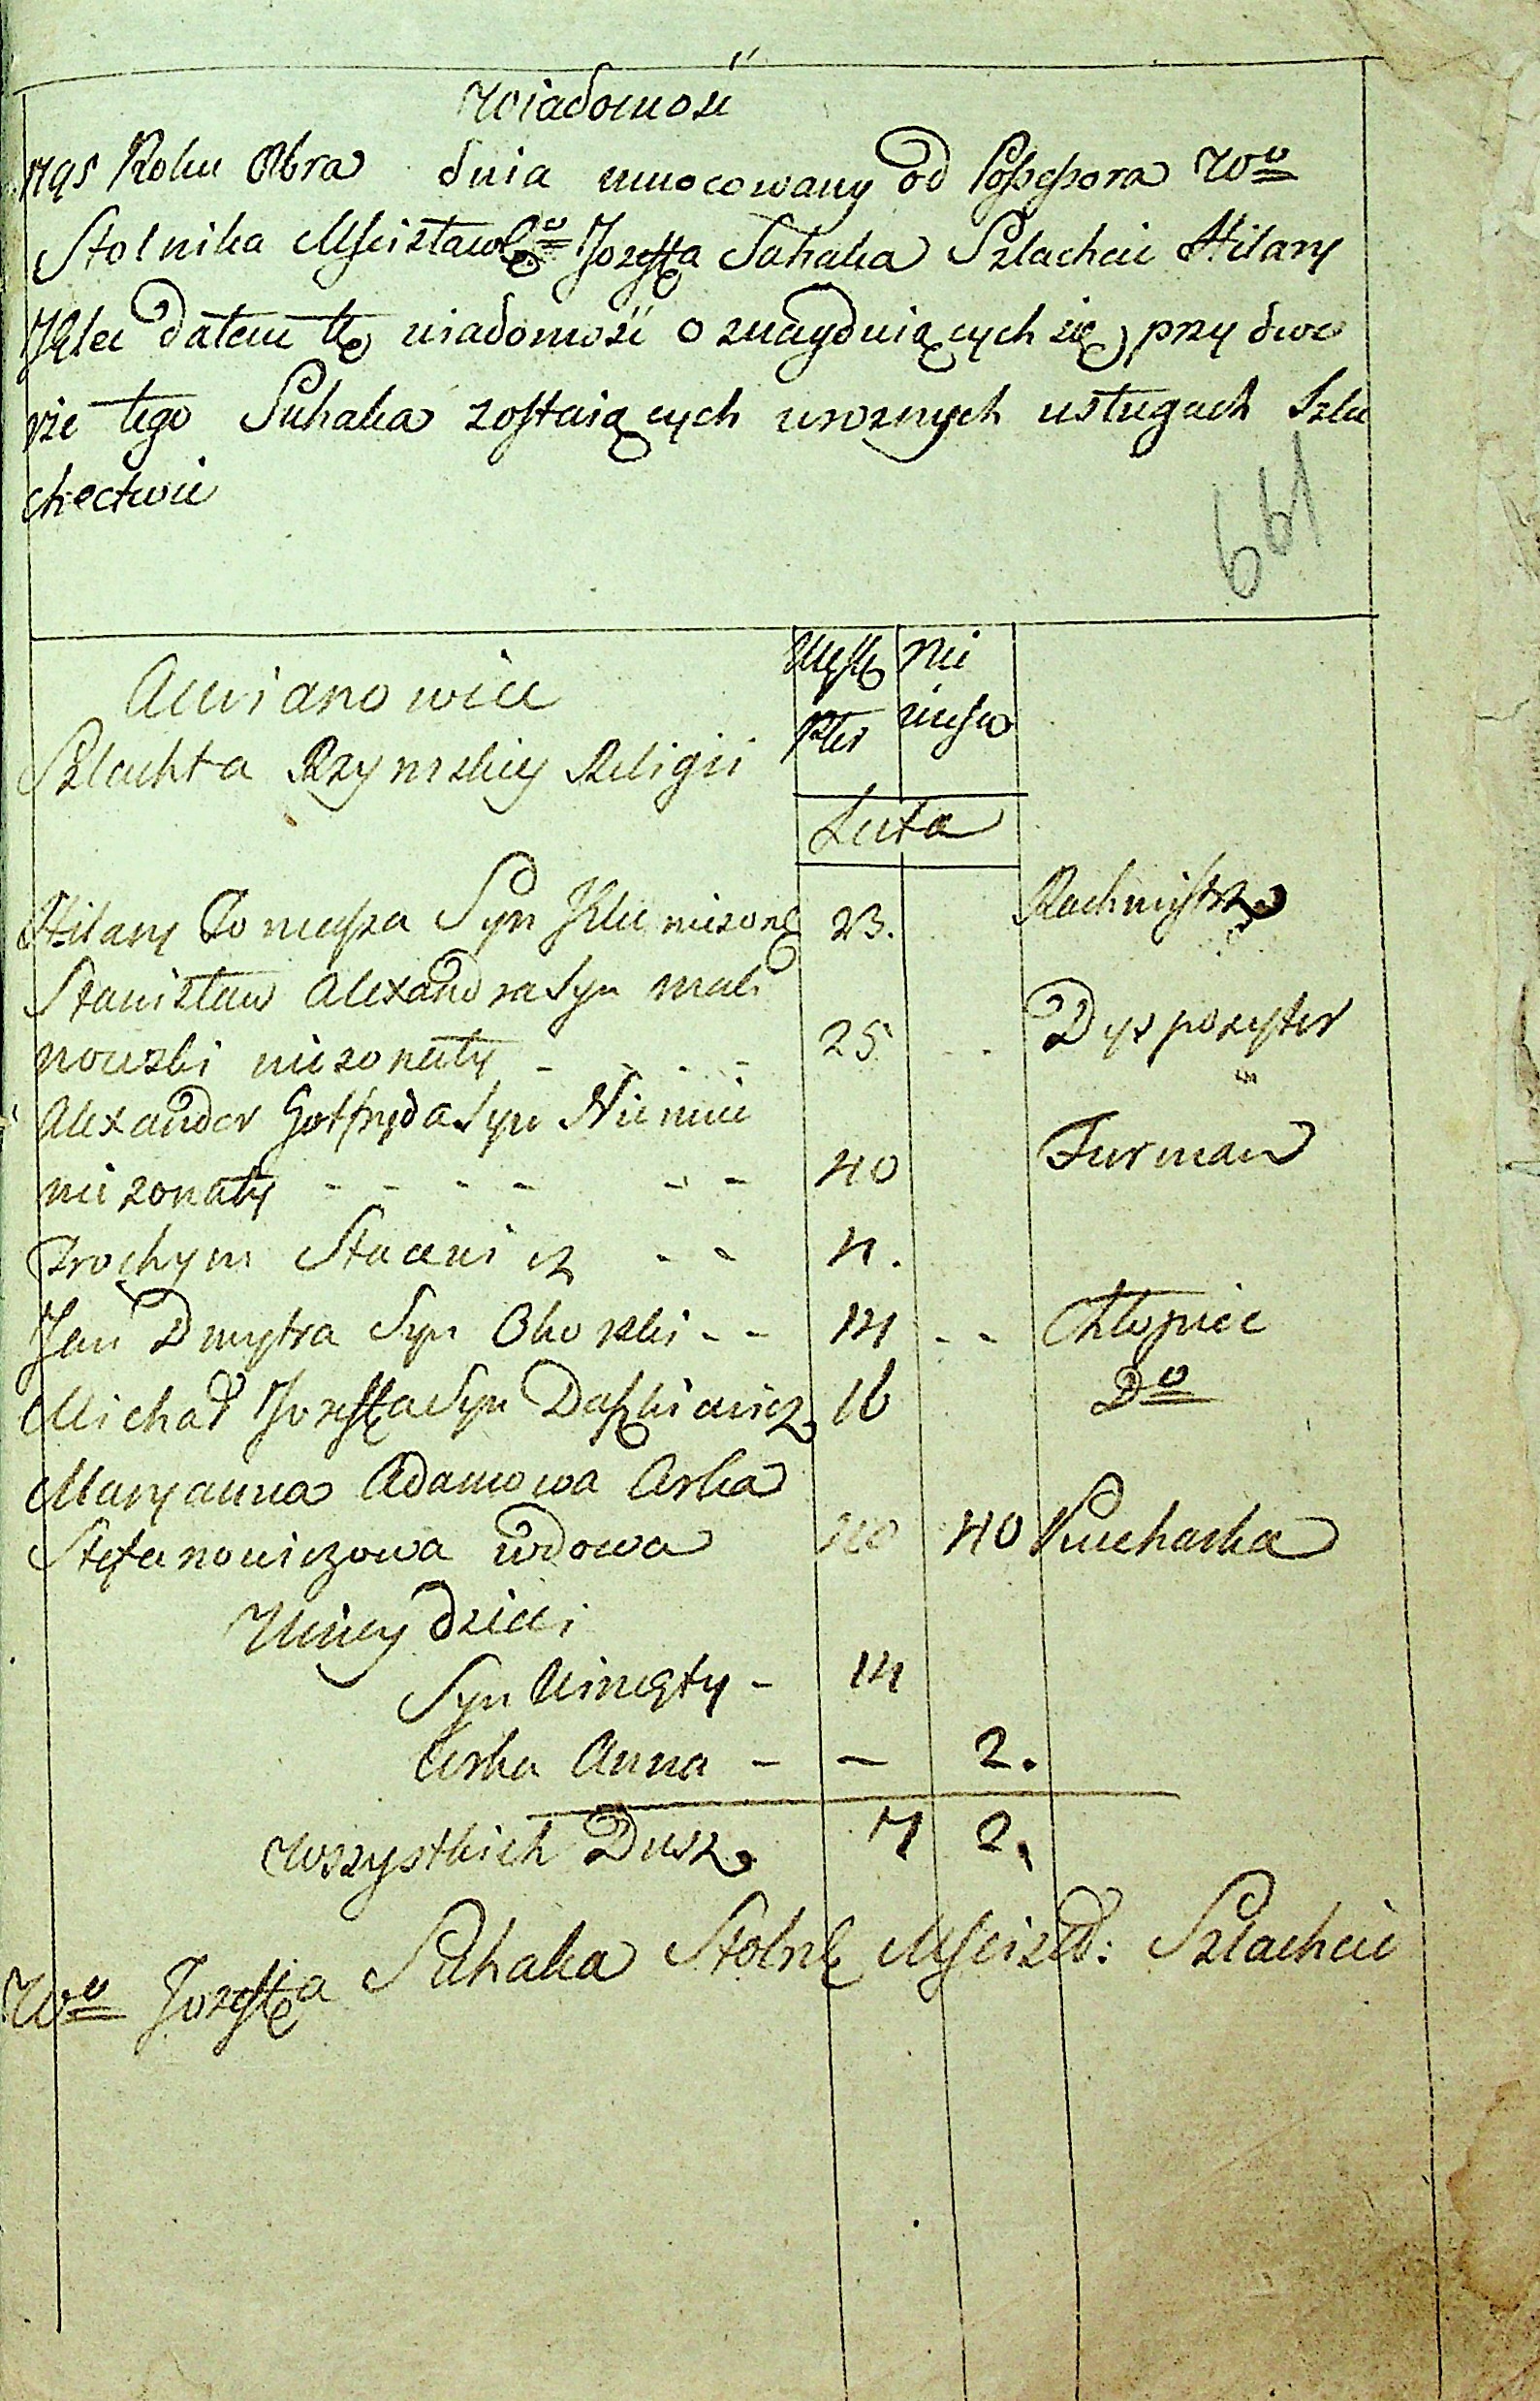 Wiadomość
1795 Roku 8bra dnia umocowany od Possessora Wo
Stolnika Mścisławo Jozeffa Suhaka Szlachcic Hilary
dałem tę wiadomość o znaydniących się przy dwo
rze tego Suhaka zostaiących w roznych usługach Szla
chectwie
661
Szlachta Rzymskiey Religii
Męsk Nie
Płci wiesw
Lata
Hilary Tomasza Syn niezont 23. Rachmistrz
Stanisław Alexandra Syn Mali
nowski niezonaty - - - 25 - - Dyspozytor
Alexander Gotfryda Syn Niemic
nie zonaty - - - - - - 40 Furman
Prochym - - 4.
Jan Dmytra Syn Okorski - - 14 - - Chłopiec
Michał Jozeffa Syn Daszkiewicz 16 Do
Maryanna Adamowa Crka
Stefanowiczowa wdowa 40 Kucharka
U niey dzieci
Syn Wincęty - 14
Crka Anna - - 2.
Wszystkich Dusz 7 2.
Wo Jozeffa Suhaka Stolnk Mścisł: Szlachcic